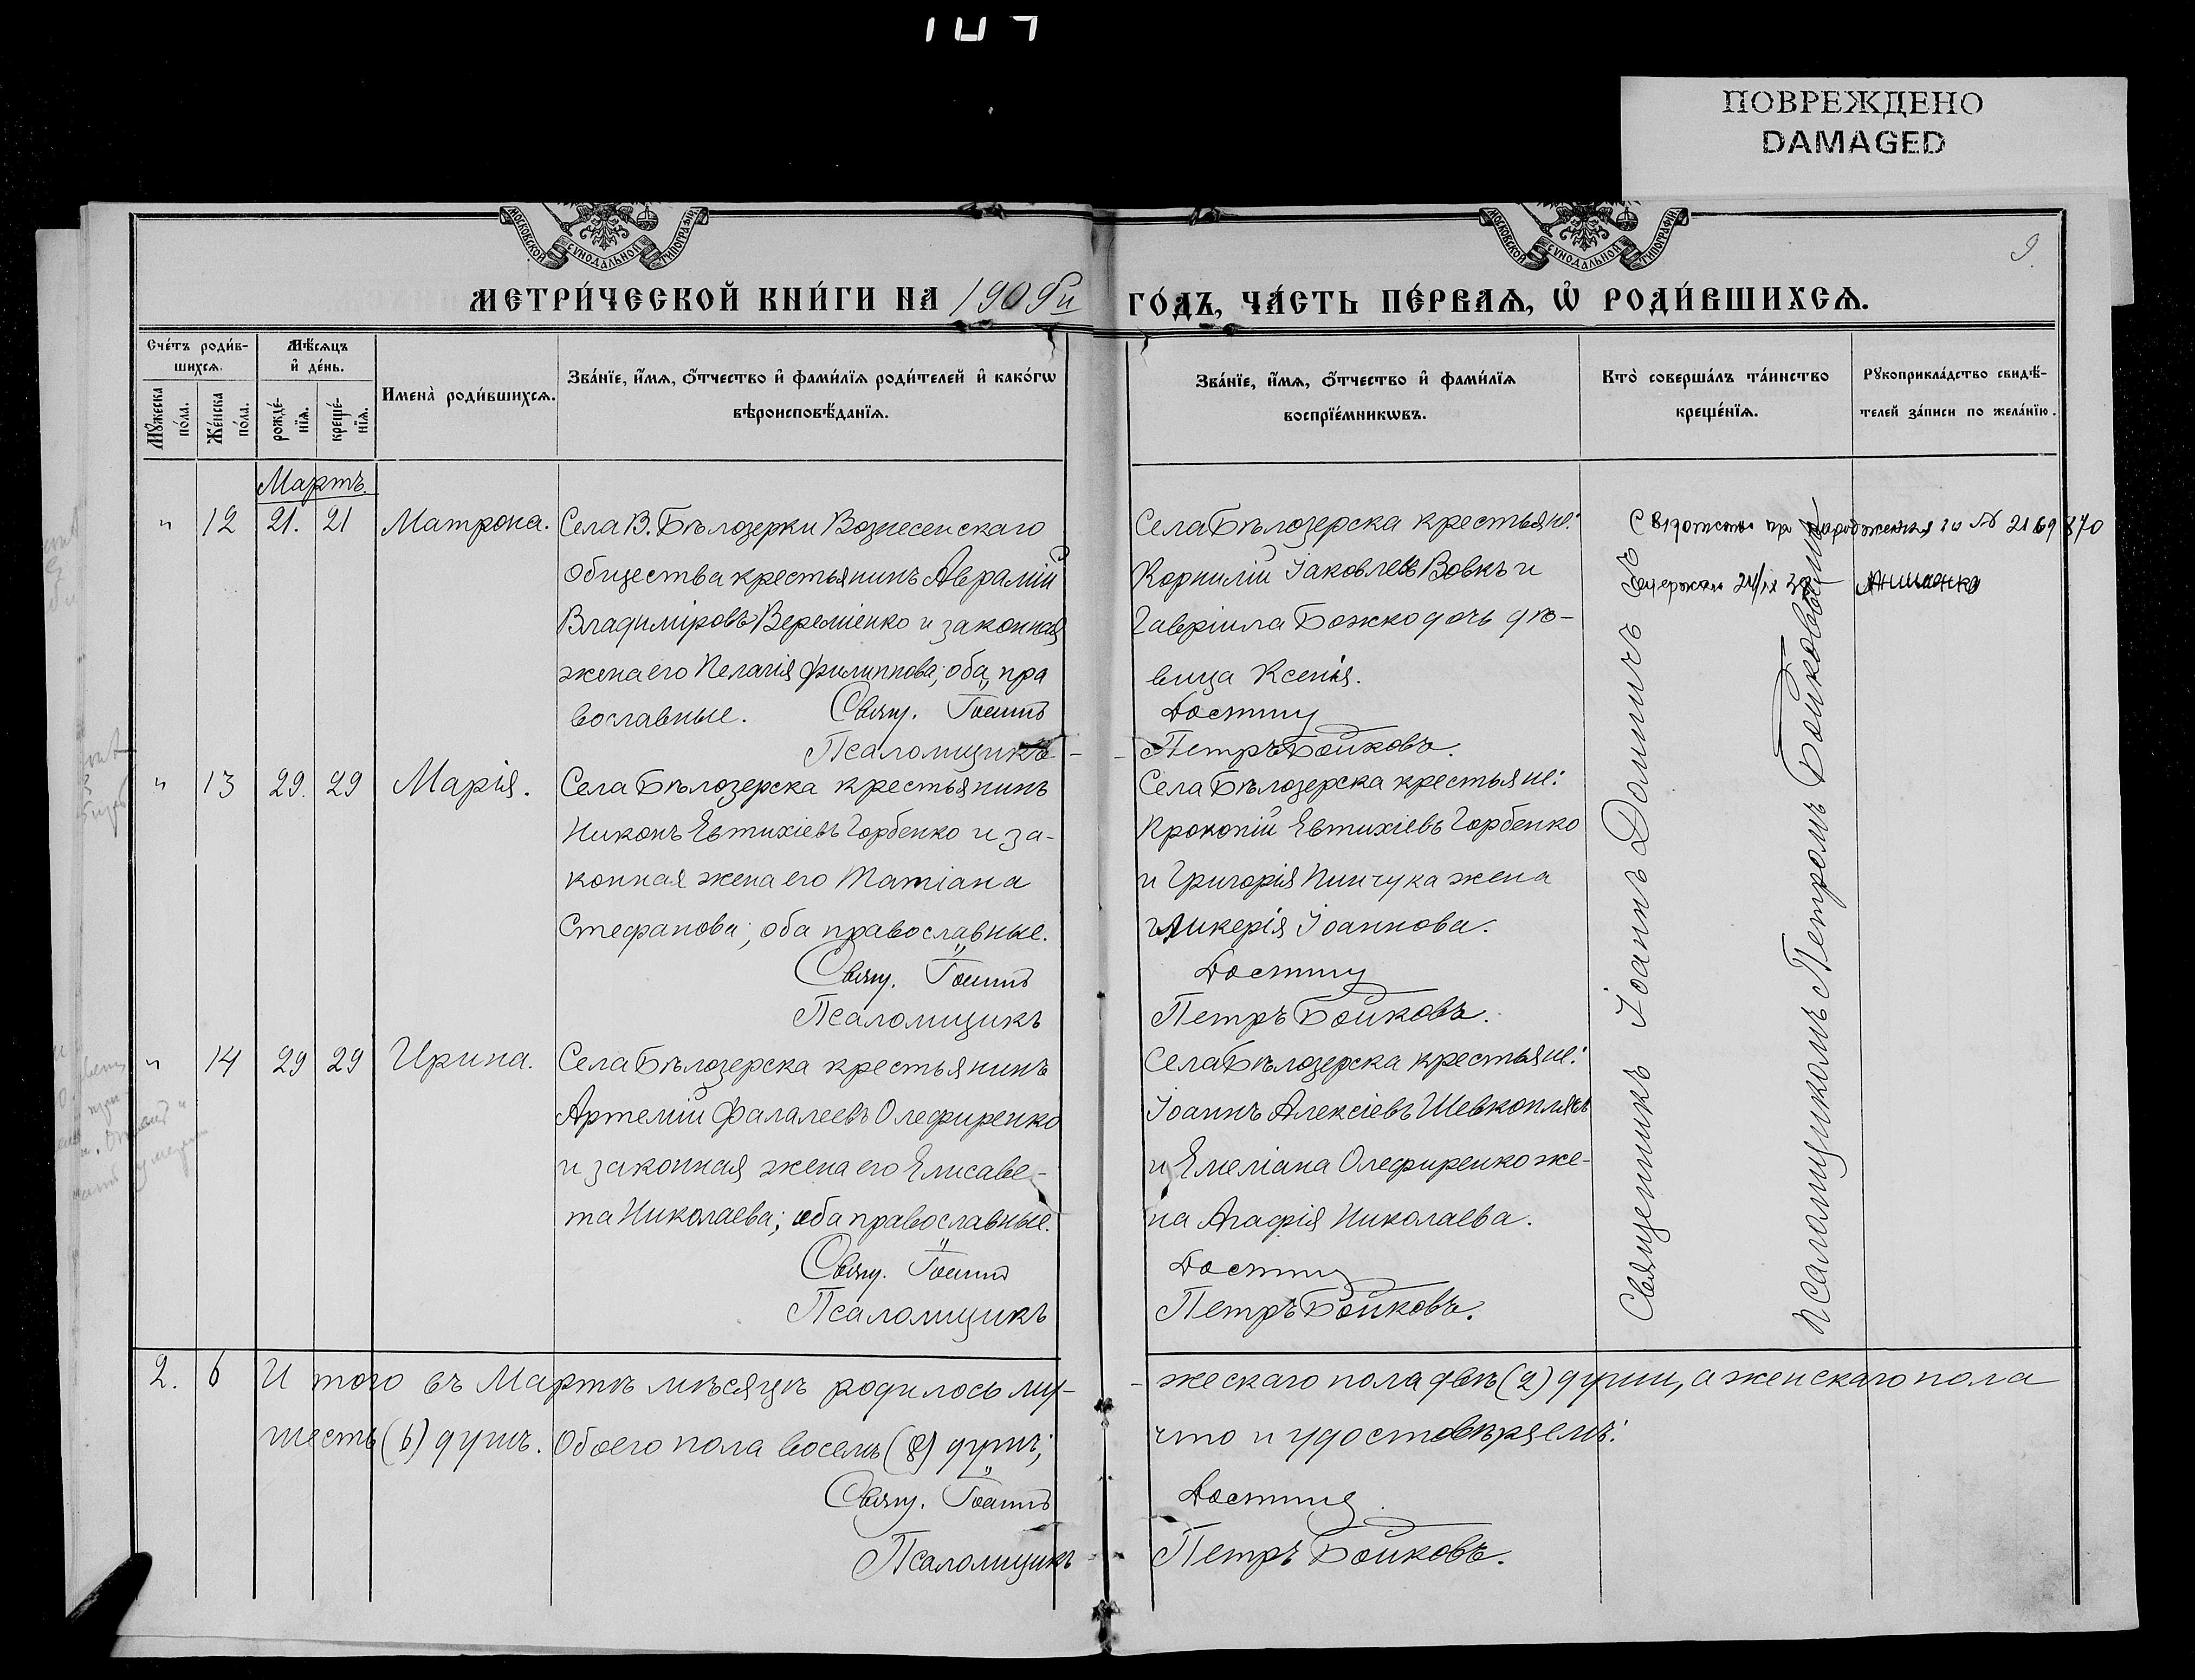 ПОВРЕЖДЕНО
DAMAGED
МОСКОВСКОЙ СѴНОДАЛЬНОЙ ТИПОГРАФІИ
МОСКОВСКОЙ СѴНОДАЛЬНОЙ ТИПОГРАФІИ
9.
МЕТРИ́ЧЕСКОЙ КНИ́ГИ НА 1909й ГО́ДЪ, ЧА́СТЬ ПЕ́РВАѦ, Ѡ҆ РОДИ́ВШИХСѦ.
Сче́тъ роди́в-
шихсѧ.
Мѣ́сѧцъ
и҆ де́нь.
Мꙋ́жеска по́ла.
Же́нска по́ла.
рожде́-нїѧ.
креще́-нїѧ.
Имена̀ роди́вшихсѧ.
Зва́нїе, и҆́мѧ, ѻ҆́тчество и҆ фами́лїѧ роди́телей и҆ како́гѡ
вѣроисповѣ́данїѧ.
Зва́нїе, и҆́мѧ, ѻ҆́тчество и҆ фами́лїѧ
воспрїе́мникѡвъ.
Кто̀ соверша́лъ та́инство
креще́нїѧ.
Рꙋкоприкла́дство свидѣ́-
телей за́писи по жела́нїю.
Мартъ.
" 12 21. 21 Матрона.
Села В. Бѣлозерки Вознесенскаго
общества крестьянинъ Аврамій
Владиміровъ Веремiенко и законная
жена его Пелагія Филиппова; оба пра
вославные. Свящ. Іоаннъ
Псаломщикъ -
Села Бѣлозерска крестьяне:
Корнилій Іаковлевъ Вовкъ и
Гавріила Божко дочь дѣ-
вица Ксенія.
Долтич
- Петръ Бойковъ.
№ 2169870
" 13 29. 29 Марія.
Села Бѣлозерска крестьянинъ
Никонъ Евтихіевъ Горбенко и за-
конная жена его Татіана
Стефанова; оба православные.
Свящ. Іоаннъ
Псаломщикъ
Села Бѣлозерска крестьяне:
Прокопій Евтихіевъ Горбенко
и Григорія Пинчука жена
Гликерія Іоаннова.
Петръ Бойковъ.
" 14 29 29 Ирина.
Села Бѣлозерска крестьянинъ
Артемій Фалалеевъ Олефиренко
и законная жена его Елисаве-
та Николаева; оба православные.
Свящ. Іоаннъ
Псаломщикъ
Села Бѣлозерска крестьяне:
Іоаннъ Алексіевъ Шевкоплясъ
и Емеліана Олефиренко же-
на Агафія Николаева.
Петръ Бойковъ.
Священникъ Іоаннъ
Псаломщикомъ Петромъ Бойковымъ
2. 6 И того въ Мартѣ мѣсяцѣ родилось му-
- жескаго пола двѣ (2) души, а женскаго пола
шесть (6) душъ. Обоего пола восемь (8) душъ;
что и удостовѣряемъ:
Свящ. Іоаннъ
Псаломщикъ - Петръ Бойковъ.